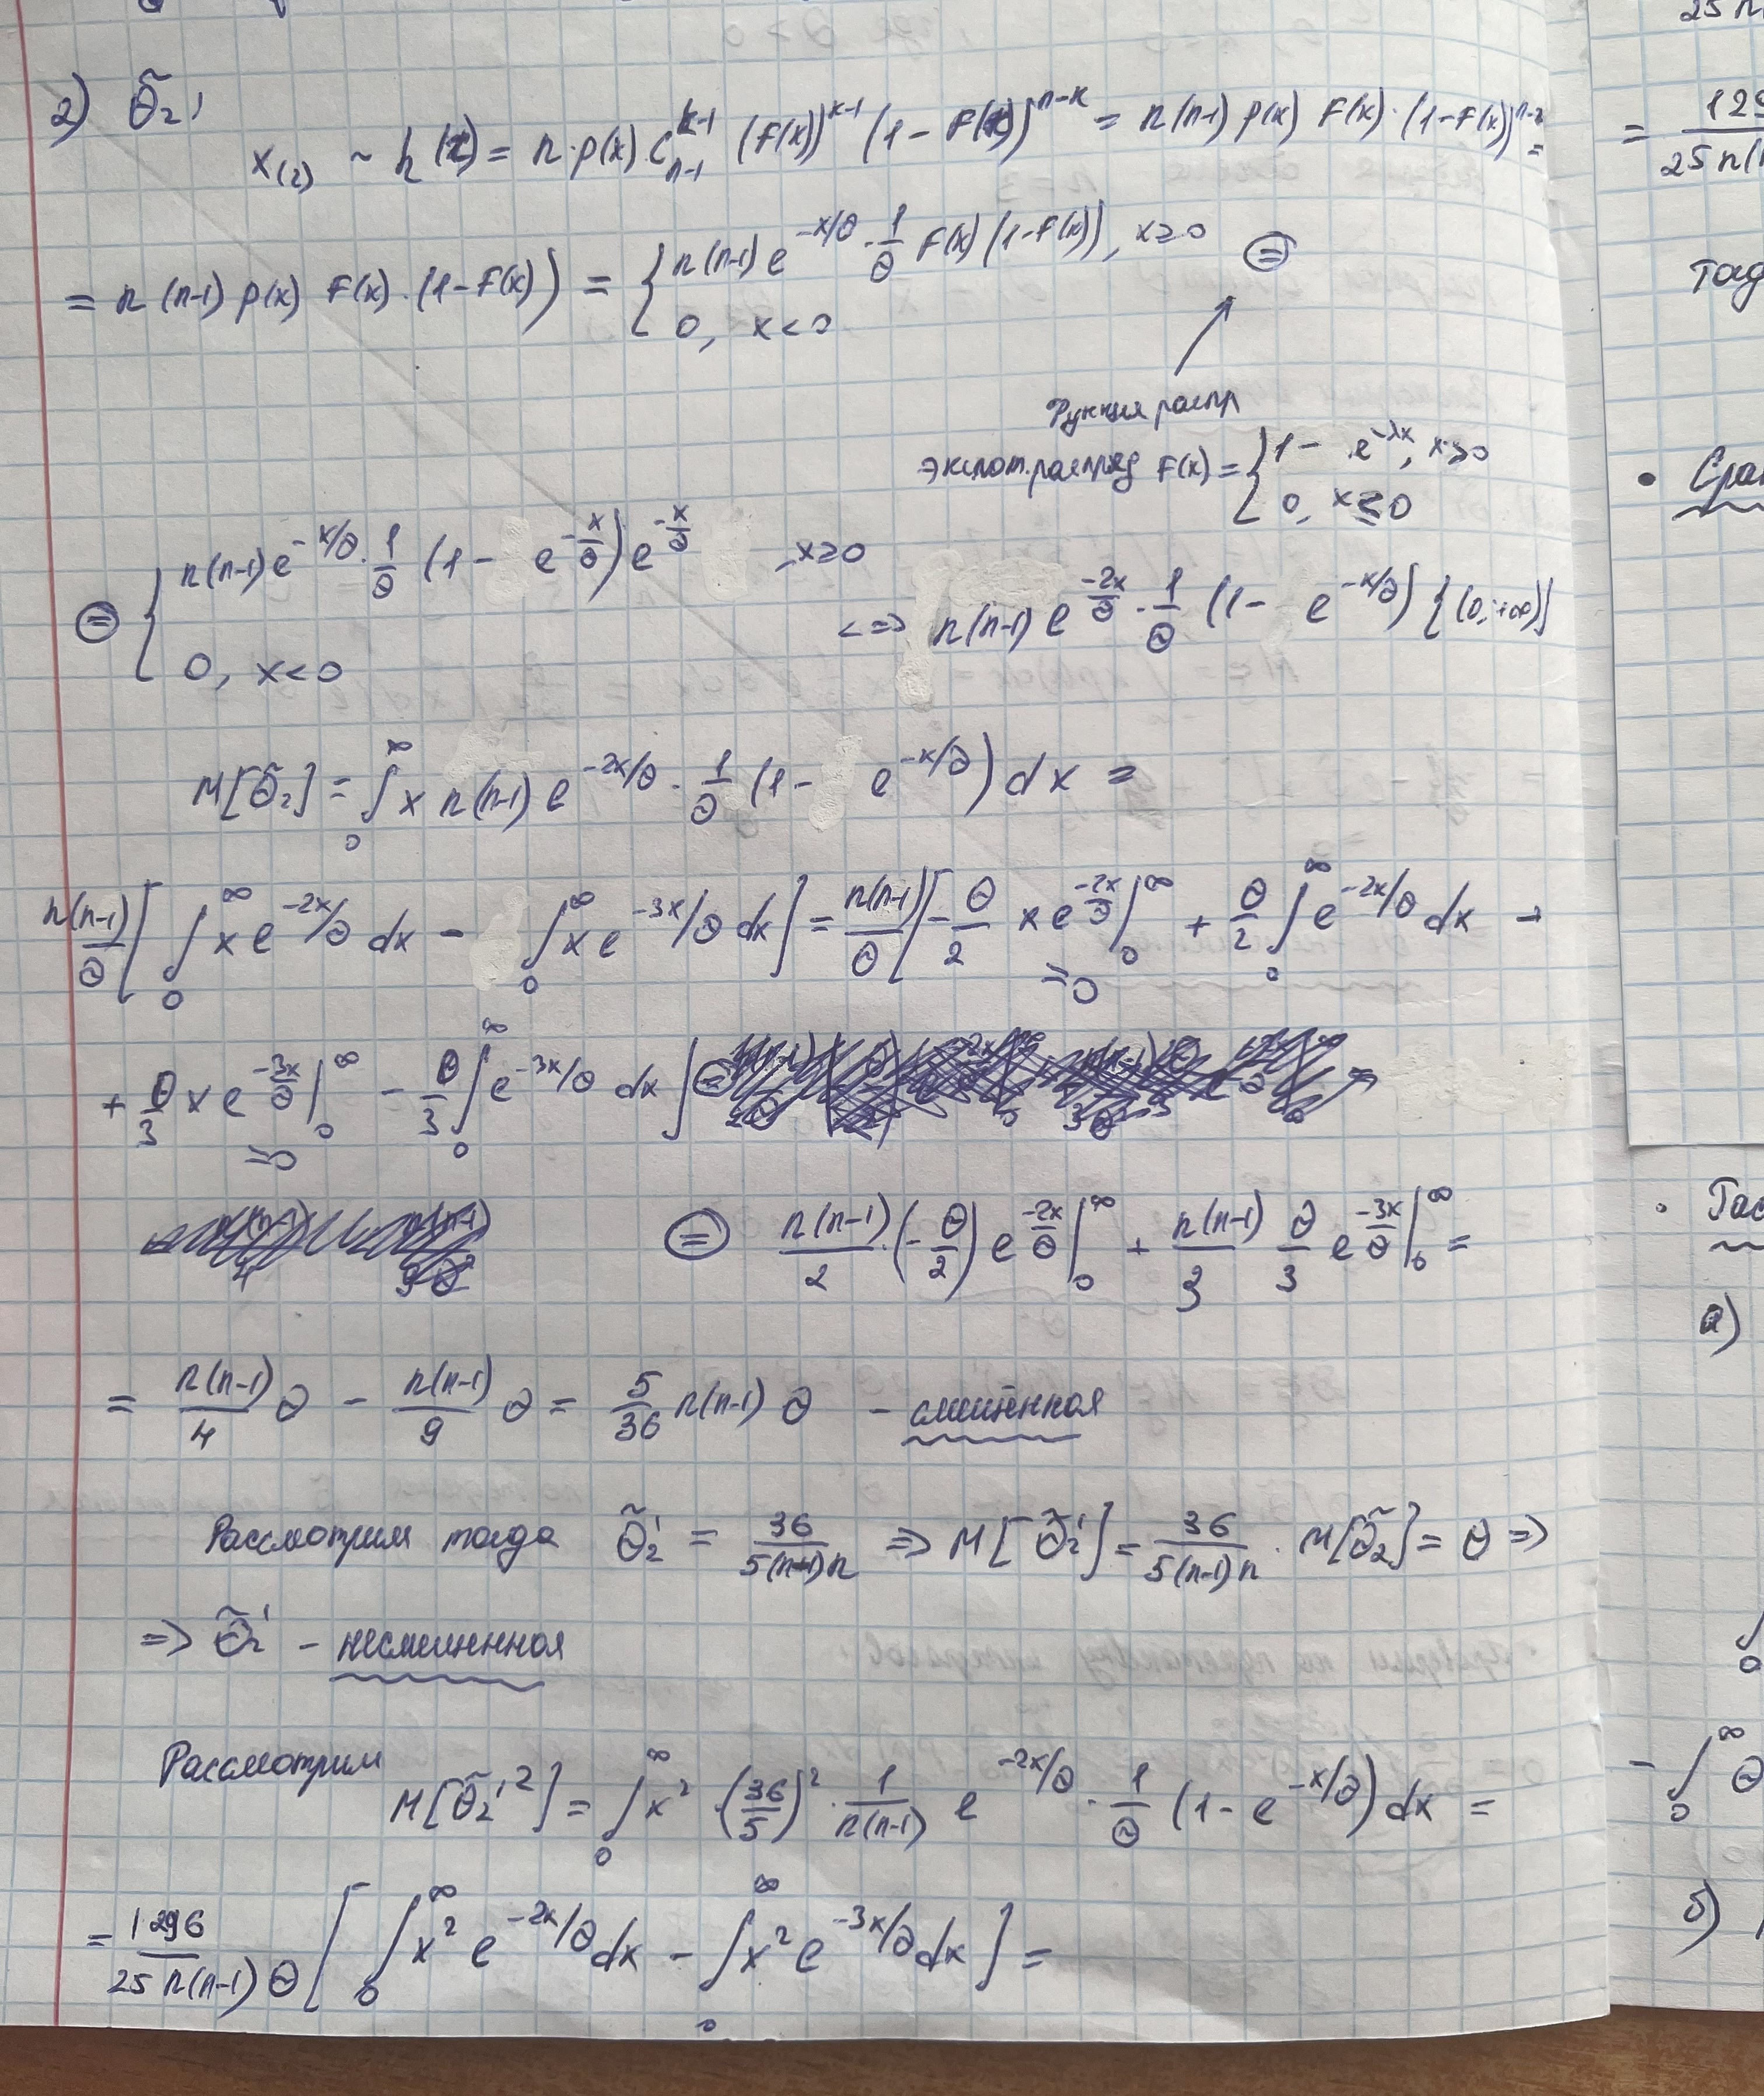 2) θ̃₂,
x₍₂₎ ~ h(x) = n·p(x)·C_{n-1}^{k-1} (F(x))^{k-1} (1-F(x))^{n-k} = n(n-1) p(x) F(x)·(1-F(x))^{n-2} =
= n(n-1) p(x) F(x)·(1-F(x)) = { n(n-1) e^{-x/θ}·1/θ F(x)(1-F(x)), x≥0 ⊜
0, x<0
Функция распр
экспон.распред F(x) = { 1 - e^{-λx}, x≥0
0, x≤0
⊜ { n(n-1) e^{-x/θ}·1/θ (1 - e^{-x/θ}) e^{-x/θ}, x≥0
0, x<0
<=> n(n-1) e^{-2x/θ}·1/θ (1 - e^{-x/θ}) {(0,+∞)}
M[θ̃₂] = ∫₀^∞ x n(n-1) e^{-2x/θ}·1/θ (1 - e^{-x/θ}) dx =
n(n-1)/θ [ ∫₀^∞ x e^{-2x/θ} dx - ∫₀^∞ x e^{-3x/θ} dx ] = n(n-1)/θ [ -θ/2 x e^{-2x/θ} |₀^∞ + θ/2 ∫₀^∞ e^{-2x/θ} dx +
=0
+ θ/3 x e^{-3x/θ} |₀^∞ - θ/3 ∫₀^∞ e^{-3x/θ} dx ]
=0
⊜ n(n-1)/2·(-θ/2) e^{-2x/θ} |₀^∞ + n(n-1)/3 θ/3 e^{-3x/θ} |₀^∞ =
= n(n-1)/4 θ - n(n-1)/9 θ = 5/36 n(n-1) θ - смещённая
Рассмотрим тогда θ̃₂' = 36/5(n-1)n => M[θ̃₂'] = 36/5(n-1)n · M[θ̃₂] = θ =>
=> θ̃₂' - несмещенная
Рассмотрим
M[θ̃₂'²] = ∫₀^∞ x²·(36/5)²·1/n(n-1) e^{-2x/θ}·1/θ (1 - e^{-x/θ}) dx =
= 1296/25 n(n-1) θ [ ∫₀^∞ x² e^{-2x/θ} dx - ∫₀^∞ x² e^{-3x/θ} dx ] =
25 n
=
25 n(
•
•
а)
- ∫₀^∞ θ
б)